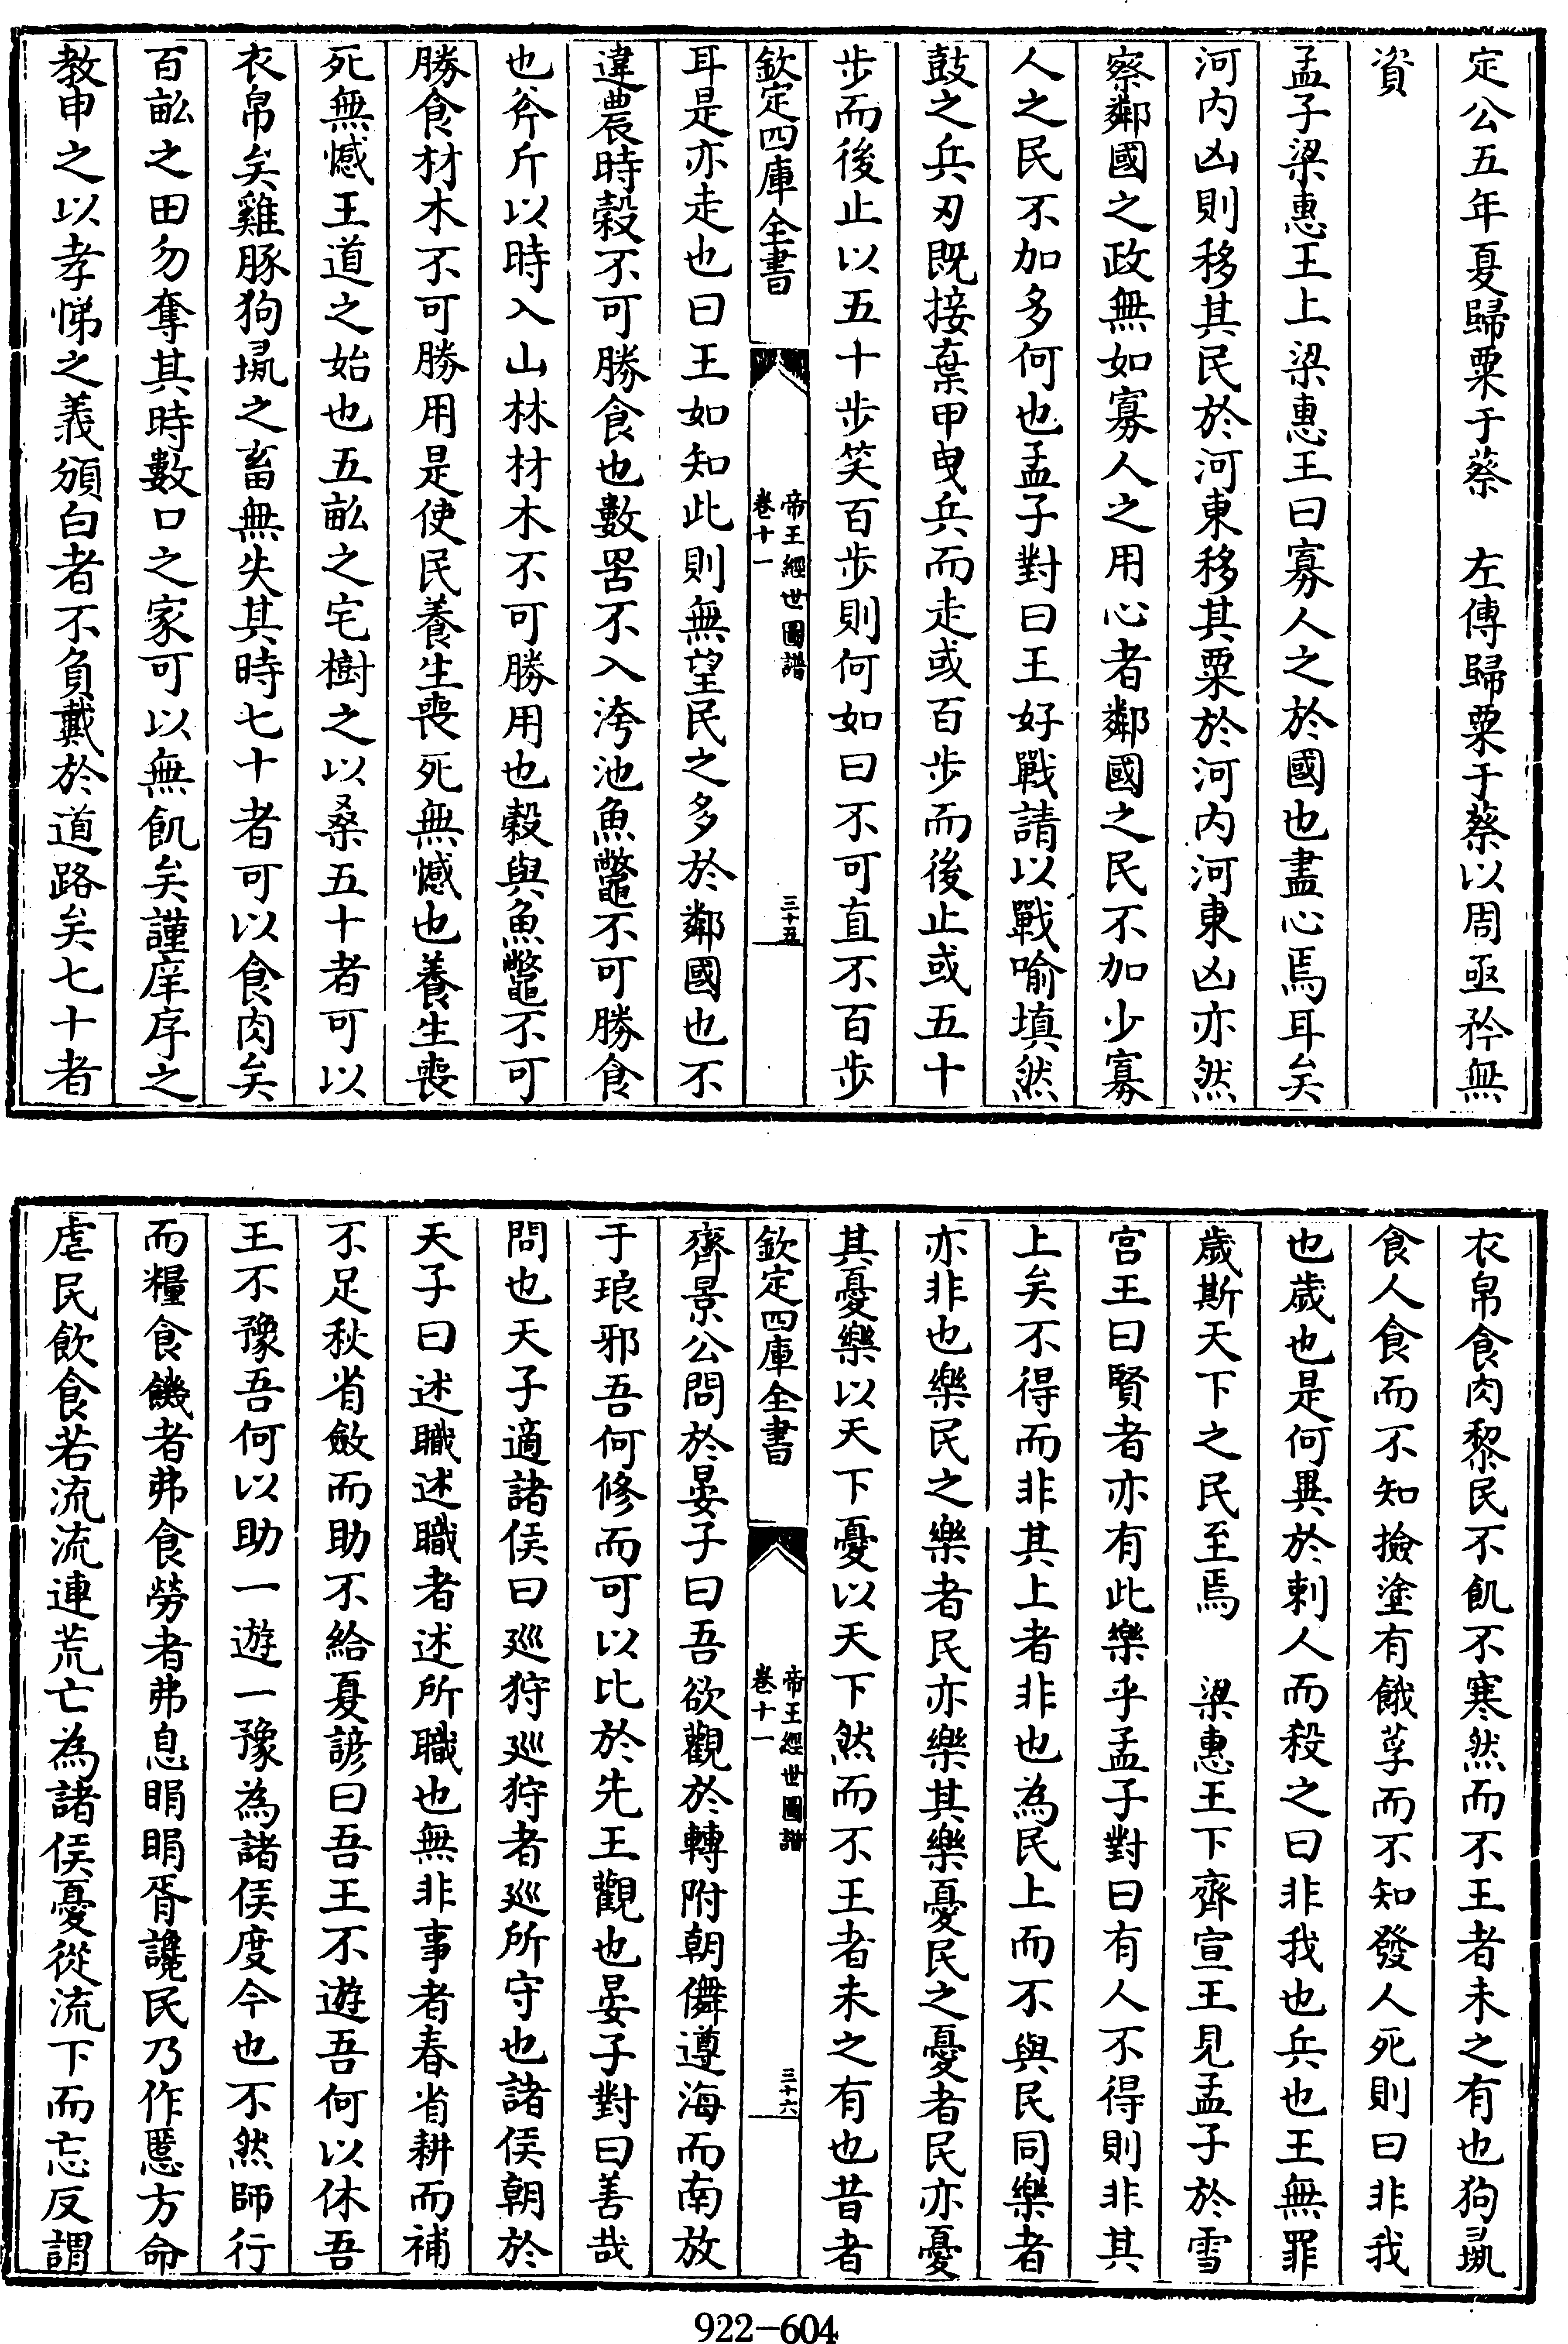 定公五年夏歸粟于蔡　左傳歸粟于蔡以周亟矜無
資
孟子梁惠王上梁惠王曰寡人之於國也盡心焉耳矣
河内凶則移其民於河東移其粟於河内河東凶亦然
察鄰國之政無如寡人之用心者鄰國之民不加少寡
人之民不加多何也孟子對曰王好戰請以戰喻填然
鼓之兵刃既接棄甲曳兵而走或百步而後止或五十
步而後止以五十步笑百步則何如曰不可直不百步
欽定四庫全書
帝王經世圖譜
卷十一
三十五
耳是亦走也曰王如知此則無望民之多於鄰國也不
違農時穀不可勝食也數罟不入洿池魚鼈不可勝食
也斧斤以時入山林材木不可勝用也穀與魚鼈不可
勝食材木不可勝用是使民養生喪死無憾也養生喪
死無憾王道之始也五畝之宅樹之以桑五十者可以
衣帛矣雞豚狗彘之畜無失其時七十者可以食肉矣
百畝之田勿奪其時數口之家可以無飢矣謹庠序之
教申之以孝悌之義頒白者不負戴於道路矣七十者
衣帛食肉黎民不飢不寒然而不王者未之有也狗彘
食人食而不知撿塗有餓莩而不知發人死則曰非我
也歲也是何異於刺人而殺之曰非我也兵也王無罪
歲斯天下之民至焉　梁惠王下齊宣王見孟子於雪
宮王曰賢者亦有此樂乎孟子對曰有人不得則非其
上矣不得而非其上者非也為民上而不與民同樂者
亦非也樂民之樂者民亦樂其樂憂民之憂者民亦憂
其憂樂以天下憂以天下然而不王者未之有也昔者
欽定四庫全書
帝王經世圖譜
卷十一
三十六
齊景公問於晏子曰吾欲觀於轉附朝儛遵海而南放
于琅邪吾何修而可以比於先王觀也晏子對曰善哉
問也天子適諸侯曰巡狩巡狩者巡所守也諸侯朝於
天子曰述職述職者述所職也無非事者春省耕而補
不足秋省斂而助不給夏諺曰吾王不遊吾何以休吾
王不豫吾何以助一遊一豫為諸侯度今也不然師行
而糧食饑者弗食勞者弗息睊睊胥讒民乃作慝方命
虐民飲食若流流連荒亡為諸侯憂從流下而忘反謂
922-604